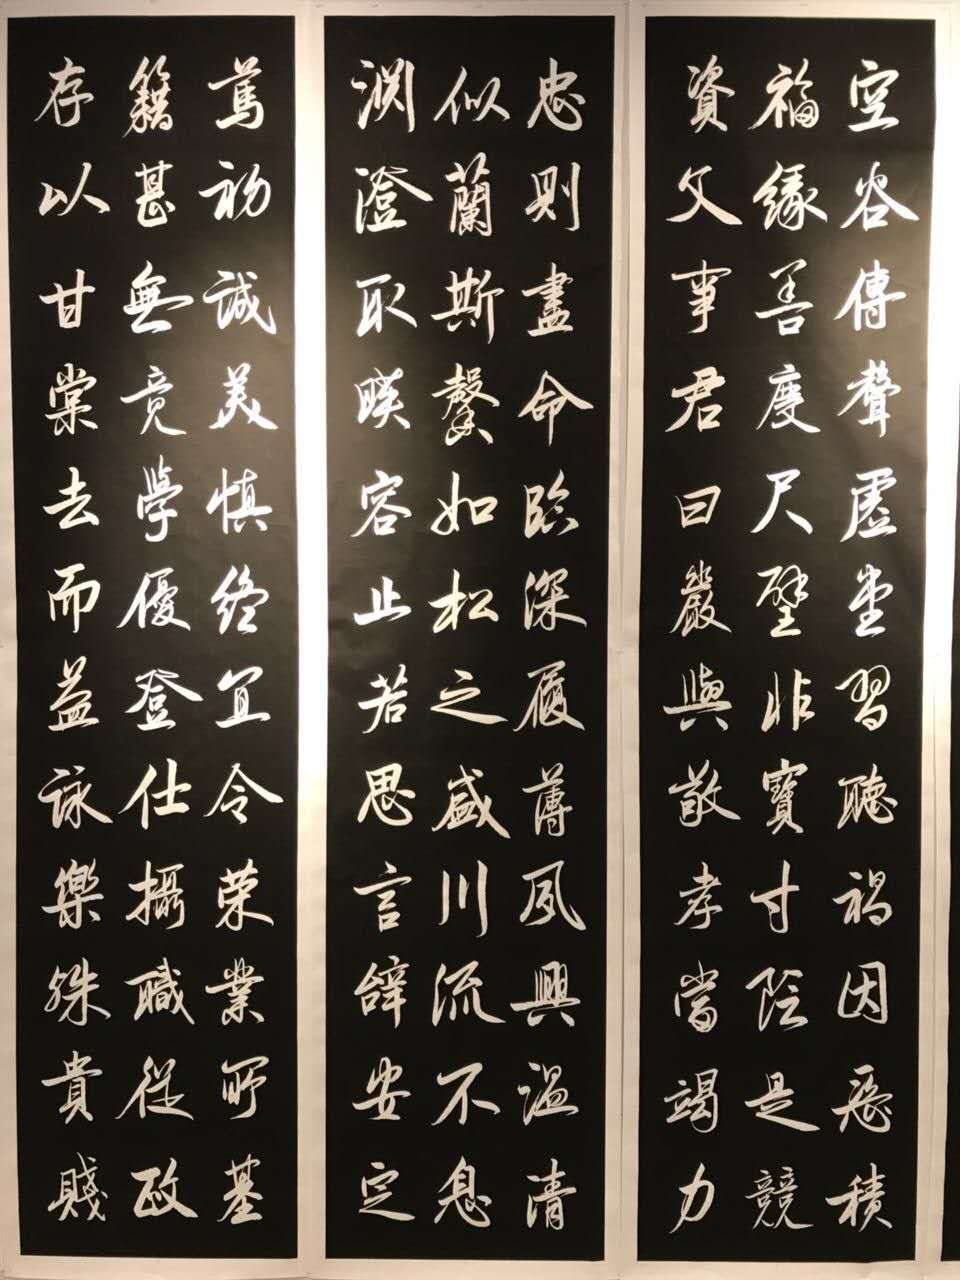 空谷傳聲虛堂習聽禍因惡積
福緣善慶尺璧非寶寸陰是競
資父事君曰嚴與敬孝當竭力
忠則盡命臨深履薄夙興温清
似蘭斯馨如松之盛川流不息
淵澄取暎容止若思言辭安定
篤初誠美慎終宜令榮業所基
籍甚無竟學優登仕攝職從政
存以甘棠去而益詠樂殊貴賤